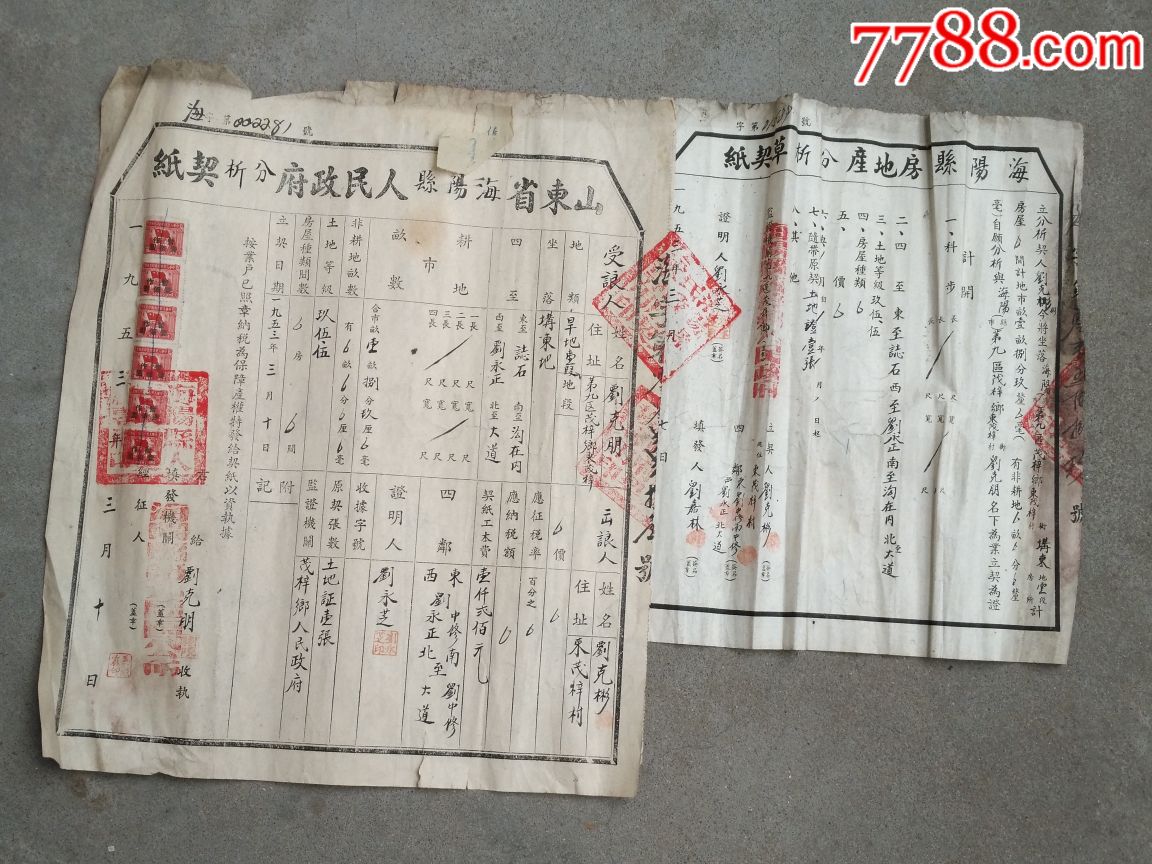 7788.com
海字第002281號
山東省海陽縣人民政府分析契紙
受讓人
姓名
劉克明
住址
第九区茂梓鄉東茂梓
出讓人
姓名
劉克彬
住址
東茂梓村
地類
旱地壹段
地段
坐落
溝東地
四至
東至 誌石
南至 沟在内
西至 劉永正
北至 大道
耕地市畝數
一長 尺寬 尺
二長 尺寬 尺
三長 尺寬 尺
四長 尺寬 尺
合市畝壹畝捌分玖厘6毫
非耕地畝數
有6畝6分6厘6毫
土地等級
玖伍伍
房屋種類間數
6房6間
立契日期
一九五三年三月十日
價
6
應征稅率
百分之6
應納稅額
6
契紙工本費
壹仟弍佰元
四鄰
東 劉中修 南 劉中修
西 劉永正 北至 大道
證明人
劉永芝
收據字號
原契張數
土地証壹張
監證機關
茂梓鄉人民政府
附記
按業戶已照章納稅為保障產權特發給契紙以資執據
右給 劉克明 收執
填發機關
(蓋章)
經征人
(蓋章)
一九五三年三月十日
字第
號
海陽縣房地產分析草契紙
立分析契人劉克彬今將坐落海陽縣第九區茂梓鄉東茂梓村溝東地壹段計
房屋6間計地市畝壹畝捌分玖釐6毫(有非耕地6畝6分6釐
6毫)自願分析與海陽縣第九區茂梓鄉東茂梓村劉克明名下為業立契為證
計開
一、科步
長 尺寬 尺
二、四至 東至誌石 西至劉永正 南至沟在内 北至大道
三、土地等級玖伍伍
四、房屋種類6
五、價6
七、隨帶原契土地證壹張
八、其他
立契人劉克彬
現住東茂梓村
四鄰
東劉中修南中修
西劉永正北大道
證明人劉永芝
填發人劉嘉林
(簽名蓋章)
一九五三年三月